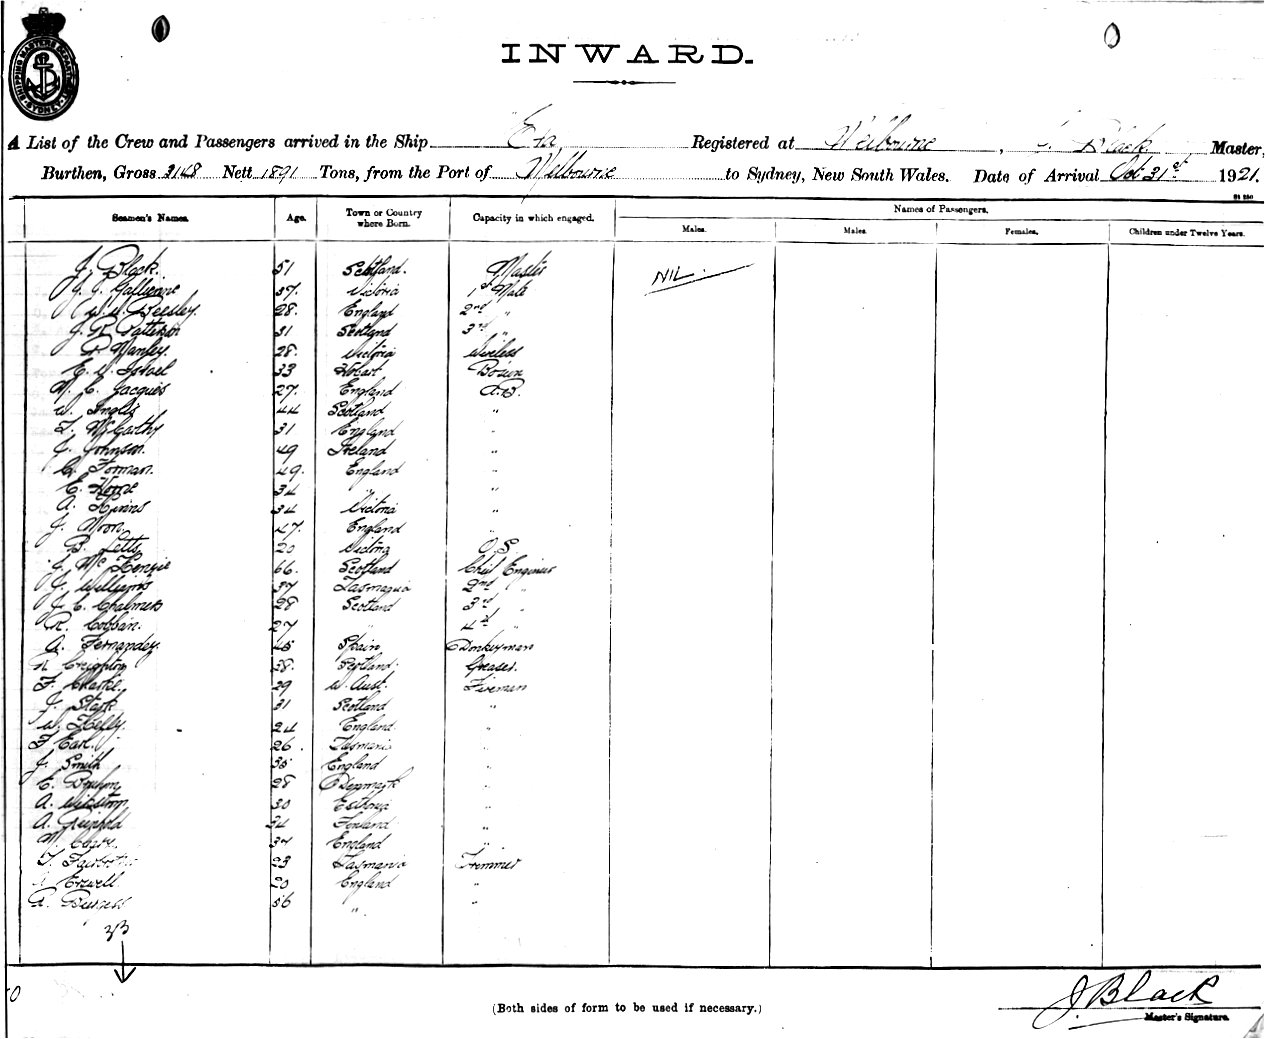 INWARD.
A List of the Crew and Passengers arrived in the Ship Era Registered at Melbourne, J. Black Master,
Burthen, Gross 3148 Nett 1891 Tons, from the Port of Melbourne to Sydney, New South Wales. Date of Arrival Oct 31st 1921.
Seamen's Names. Age. Town or Country where Born. Capacity in which engaged. Names of Passengers.
Males. Males. Females. Children under Twelve Years.
J. Black. 51 Scotland. Master NIL.
J. Gallienne 37. Victoria 1st Mate
W. W. Beesley. 28. England 2nd "
J. R. Patterson 31 Scotland 3rd "
R. Manley. 28. Victoria Wireless
E. W. Israel 33 Hobart Bosun
M. C. Jacques 27. England A.B.
W. Inglis 44 Scotland "
T. McCarthy 31 England "
J. Johnson. 49 Ireland "
Forman. 49. England "
E. Horne 34 " "
A. Hinns 34 Victoria "
J. Moon 47. England "
B. Letts 20 Victoria O.S.
J. McKenzie 66. Scotland Chief Engineer
J. Williams 37 Tasmania 2nd "
J. C. Chalmers 28 Scotland 3rd "
R. Cobban. 27 " 4th "
A. Fernandez. 45 Spain Donkeyman
Creighton 38. Scotland. Greaser.
F. Clarke. 29 W. Aust. Fireman
J. Stark 31 Scotland "
W. Kelly. 24 England. "
F. Earl. 26. Tasmania "
J. Smith 35 England "
E. 28 Denmark "
A. Wikstrom 30 Esthonia "
A. Reinhold 34 Finland "
M. 37 England "
T. 23 Tasmania Trimmer
Erwell. 20 England "
A. 56 " "
33
(Both sides of form to be used if necessary.)
J. Black
Master's Signature.